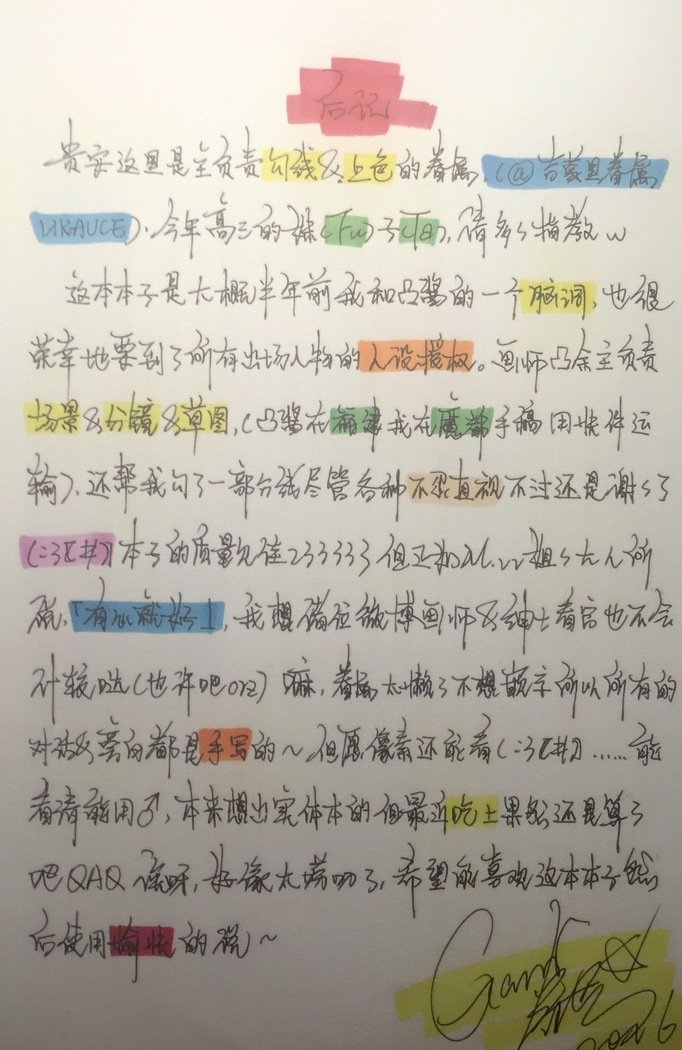 后记
贵安这里是主负责勾线&上色的眷属,(@吉蒙里眷属
URAUCE).今年高三的妹(Fu)子(Ta),请多多指教w
这本本子是大概半年前我和凸酱的一个脑洞,也很
荣幸地要到了所有出场人物的人设授权。画师凸余主负责
场景&分镜&草图,(凸酱在福建我在魔都手稿用快件运
输),还帮我勾了一部分线尽管各种不忍直视不过还是谢々了
(:3[卄)本子的质量见佳233333但正如M.w姐々大人所
说,「有爪就好」,我想诸位微博画师&绅士看官也不会
计较哒(也许吧orz)嘛,眷属太懒了不想嵌字所以所有的
对话&旁白都是手写的~但愿像素还能看(:3[卄)……能
看清能用♂,本来想出实体本的但最近吃土果然还是算了
吧QAQ诶呀,好像太唠叨了,希望能喜欢这本本子然
后使用愉快的说~